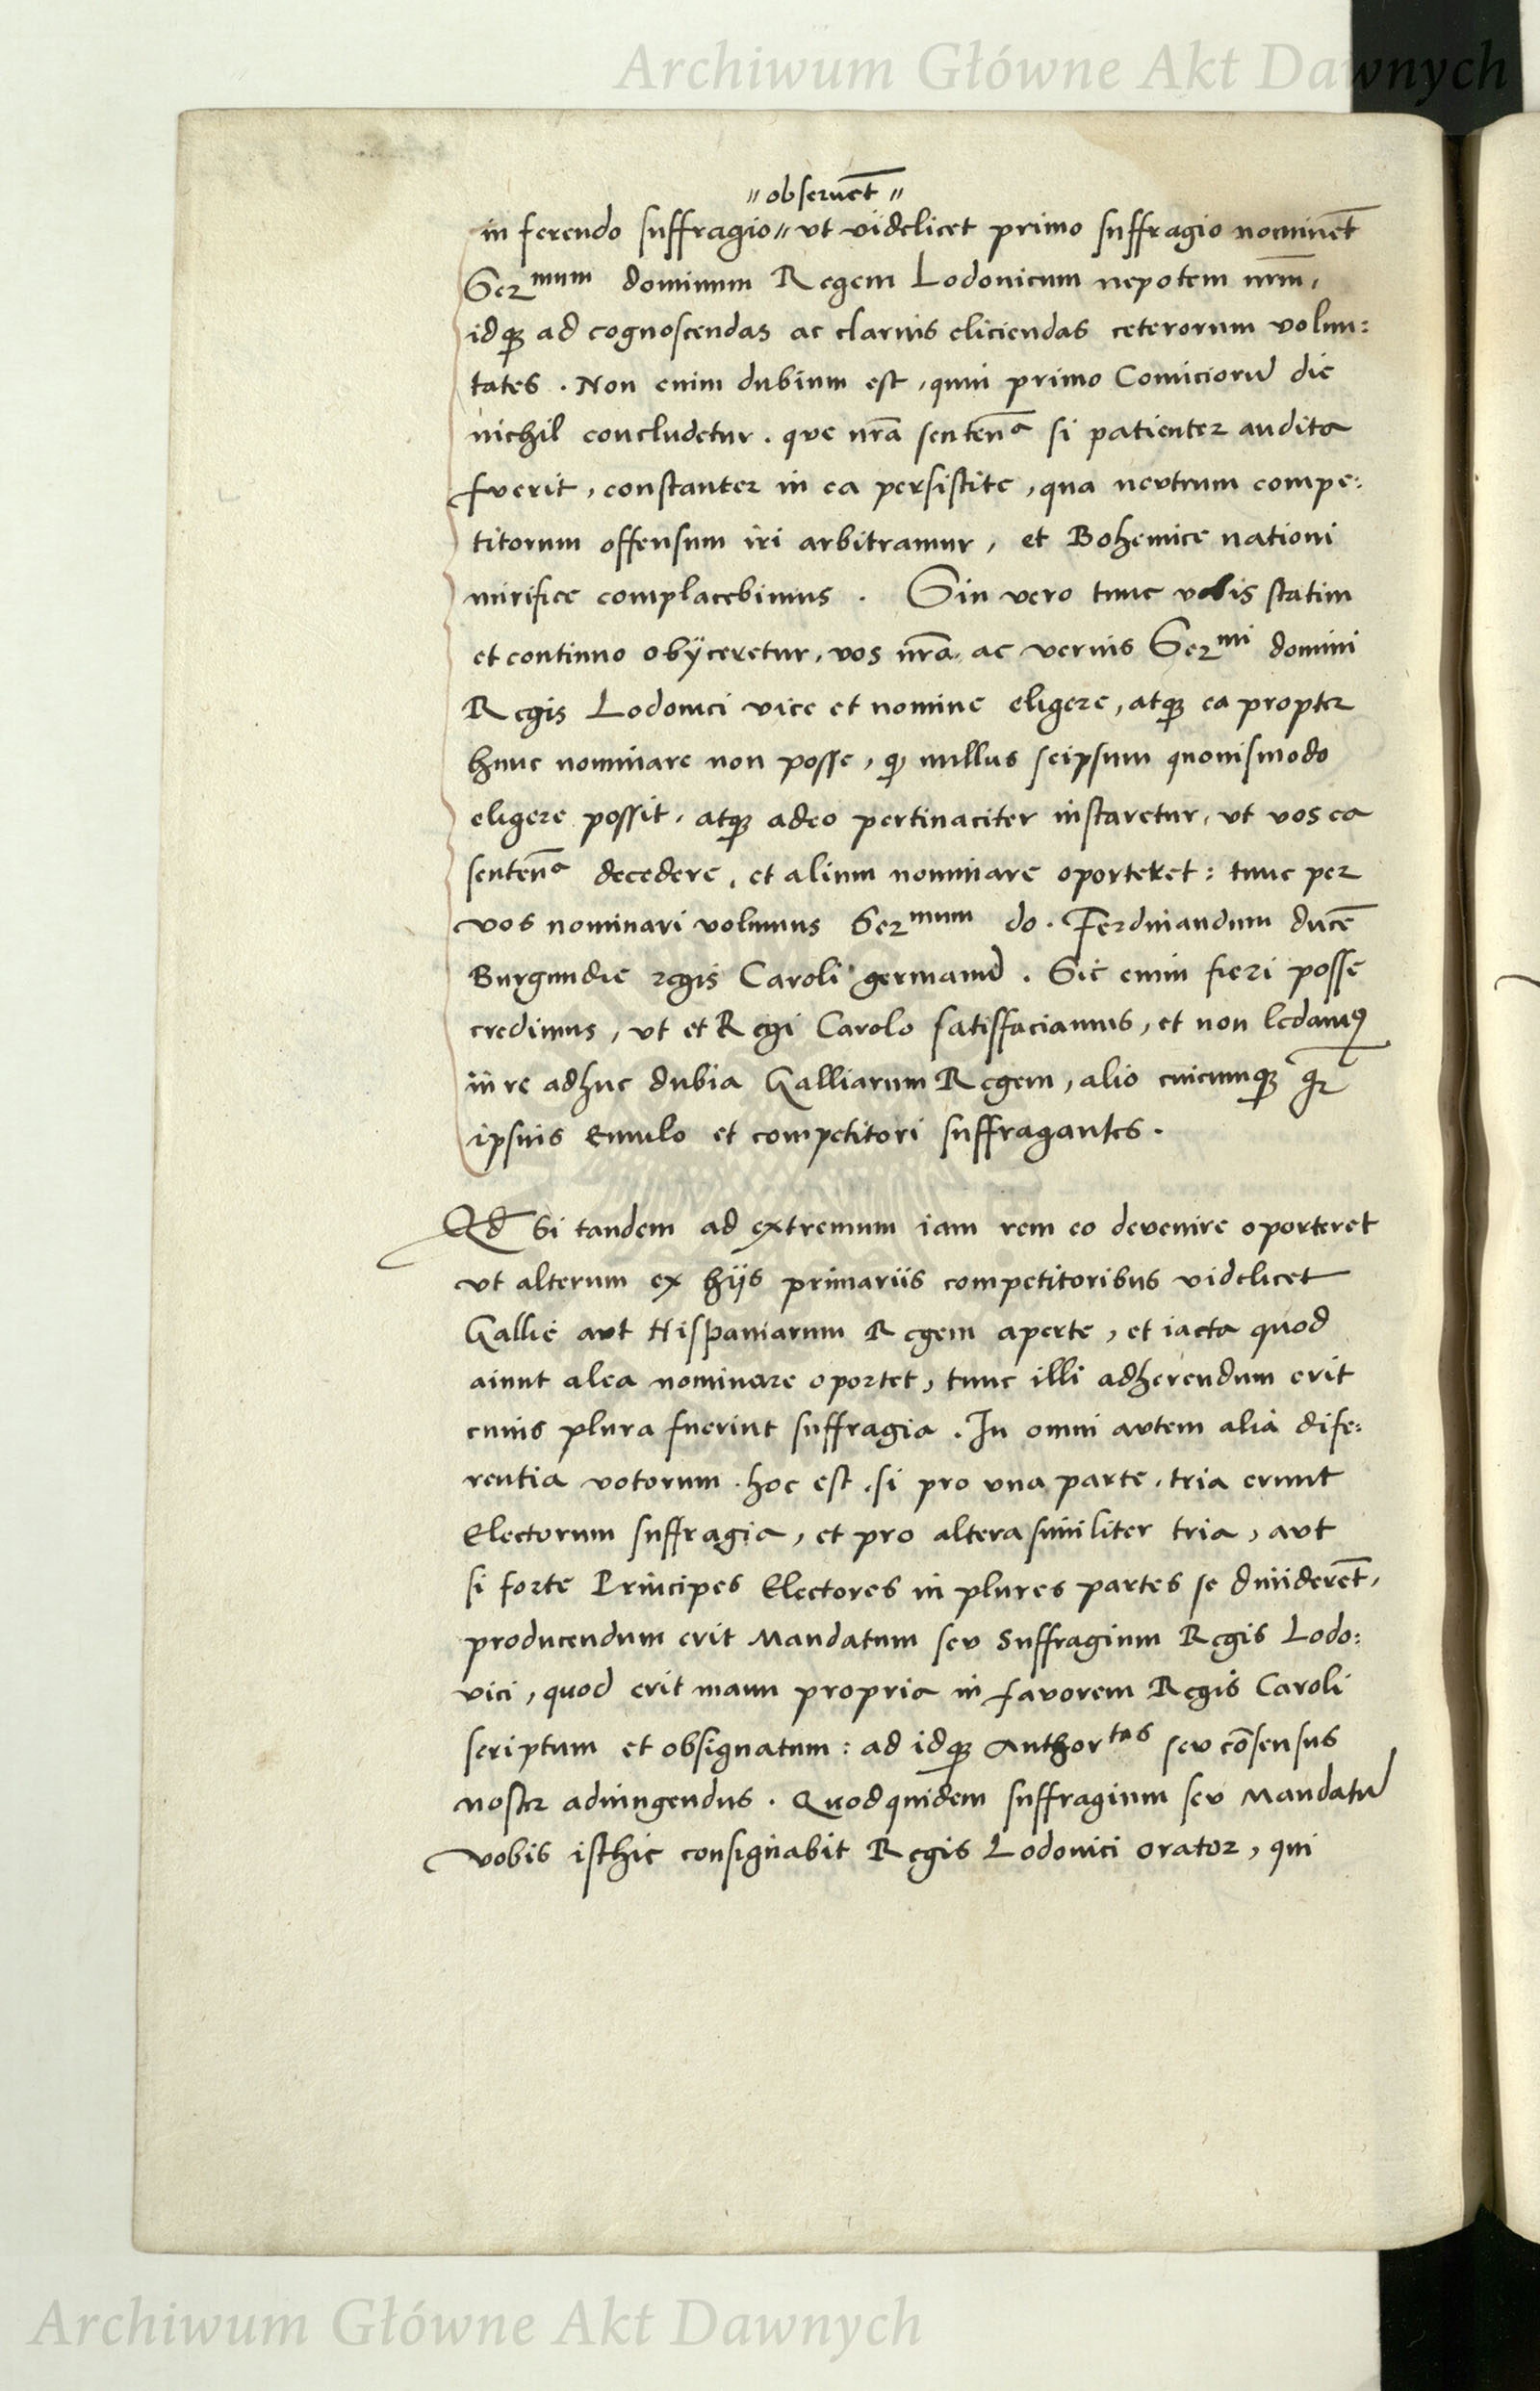 Archiwum Główne Akt Dawnych
"observēt"
in ferendo suffragio" ut videlicet primo suffragio nominēt
Serᵐᵘᵐ dominum Regem Lodovicum nepotem nr̄m,
idqꝫ ad cognoscendas ac clarius eliciendas ceterorum volun:
tates. Non enim dubium est, quin primo Comiciorū die
nichil concludetur. que nr̄a sentenᵃ si patienter audita
fuerit, constanter in ea persistite, qua neutrum compe:
titorum offensum iri arbitramur, et Bohemice nationi
mirifice complacebimus. Sin vero tunc vobis statim
et continuo obÿceretur, vos nr̄a ac verius Serᵐⁱ domini
Regis Lodovici vice et nomine eligere, atqꝫ ea propter
hunc nominare non posse, qꝫ nullus seipsum quovismodo
eligere possit, atqꝫ adeo pertinaciter instaretur, ut vos ea
sentenᵃ decedere, et alium nominare oporteret: tunc per
vos nominari volumus Serᵐᵘᵐ do. Ferdinandum ducē
Burgundie regis Caroli germanū. Sic enim fieri posse
credimus, ut et Regi Carolo satisfaciamus, et non ledamꝰ
in re adhuc dubia Galliarum Regem, alio cuicumqꝫ
ipsius emulo et competitori suffragantes.
Qd Si tandem ad extremum iam rem eo devenire oporteret
ut alterum ex hÿs primariis competitoribus videlicet
Gallie aut Hispaniarum Regem aperte, et iacta quod
aiunt alea nominare oportet, tunc illi adherendum erit
cuius plura fuerint suffragia. In omni autem alia dife:
rentia votorum. hoc est, si pro una parte, tria erunt
Electorum suffragia, et pro altera similiter tria, aut
si forte Principes Electores in plures partes se dividerēt,
producendum erit Mandatum seu Suffragium Regis Lodo:
vici, quod erit manu propria in favorem Regis Caroli
scriptum et obsignatum: ad idqꝫ Authorᵗᵃˢ seu cōsensus
noster adiungendus. Quod quidem suffragium seu Mandatū
vobis isthic consignabit Regis Lodovici orator, qui
Archiwum Główne Akt Dawnych